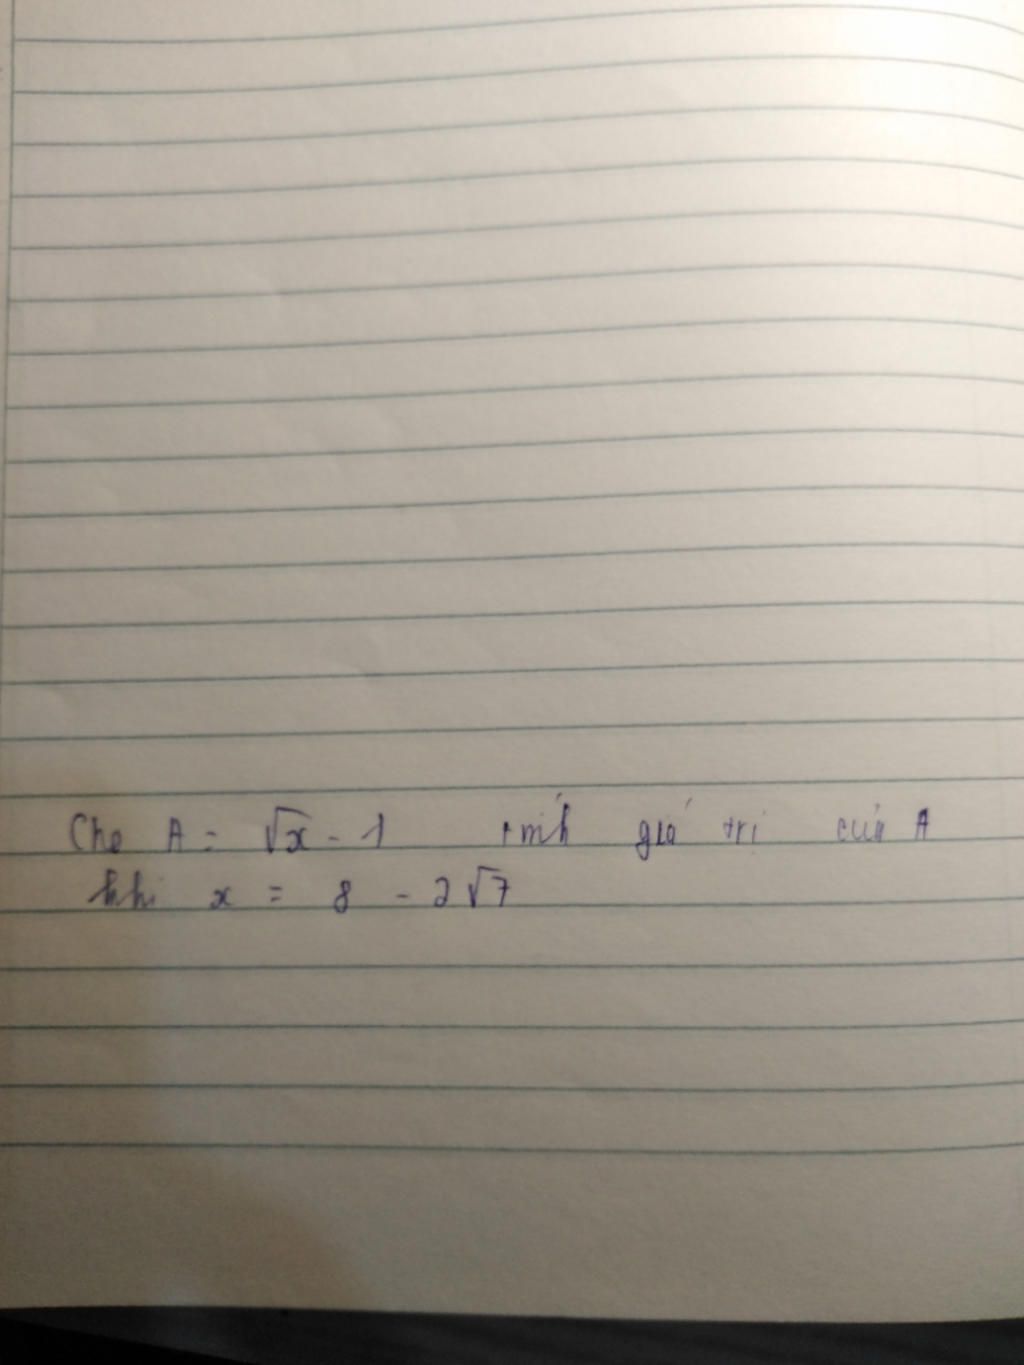 Cho A = √x - 1 tính giá trị của A
khi x = 8 - 2√7